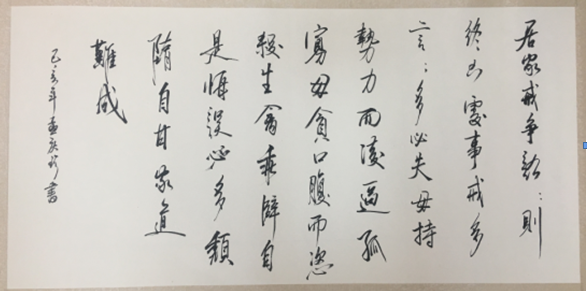 居家戒争訟:則
终凶處事戒多
言:多必失毋持
勢力而凌逼孤
寡毋貪口腹而恣
殺生禽乖僻自
是悔误必多頹
隋自甘家道
難成
己亥年孟庆書